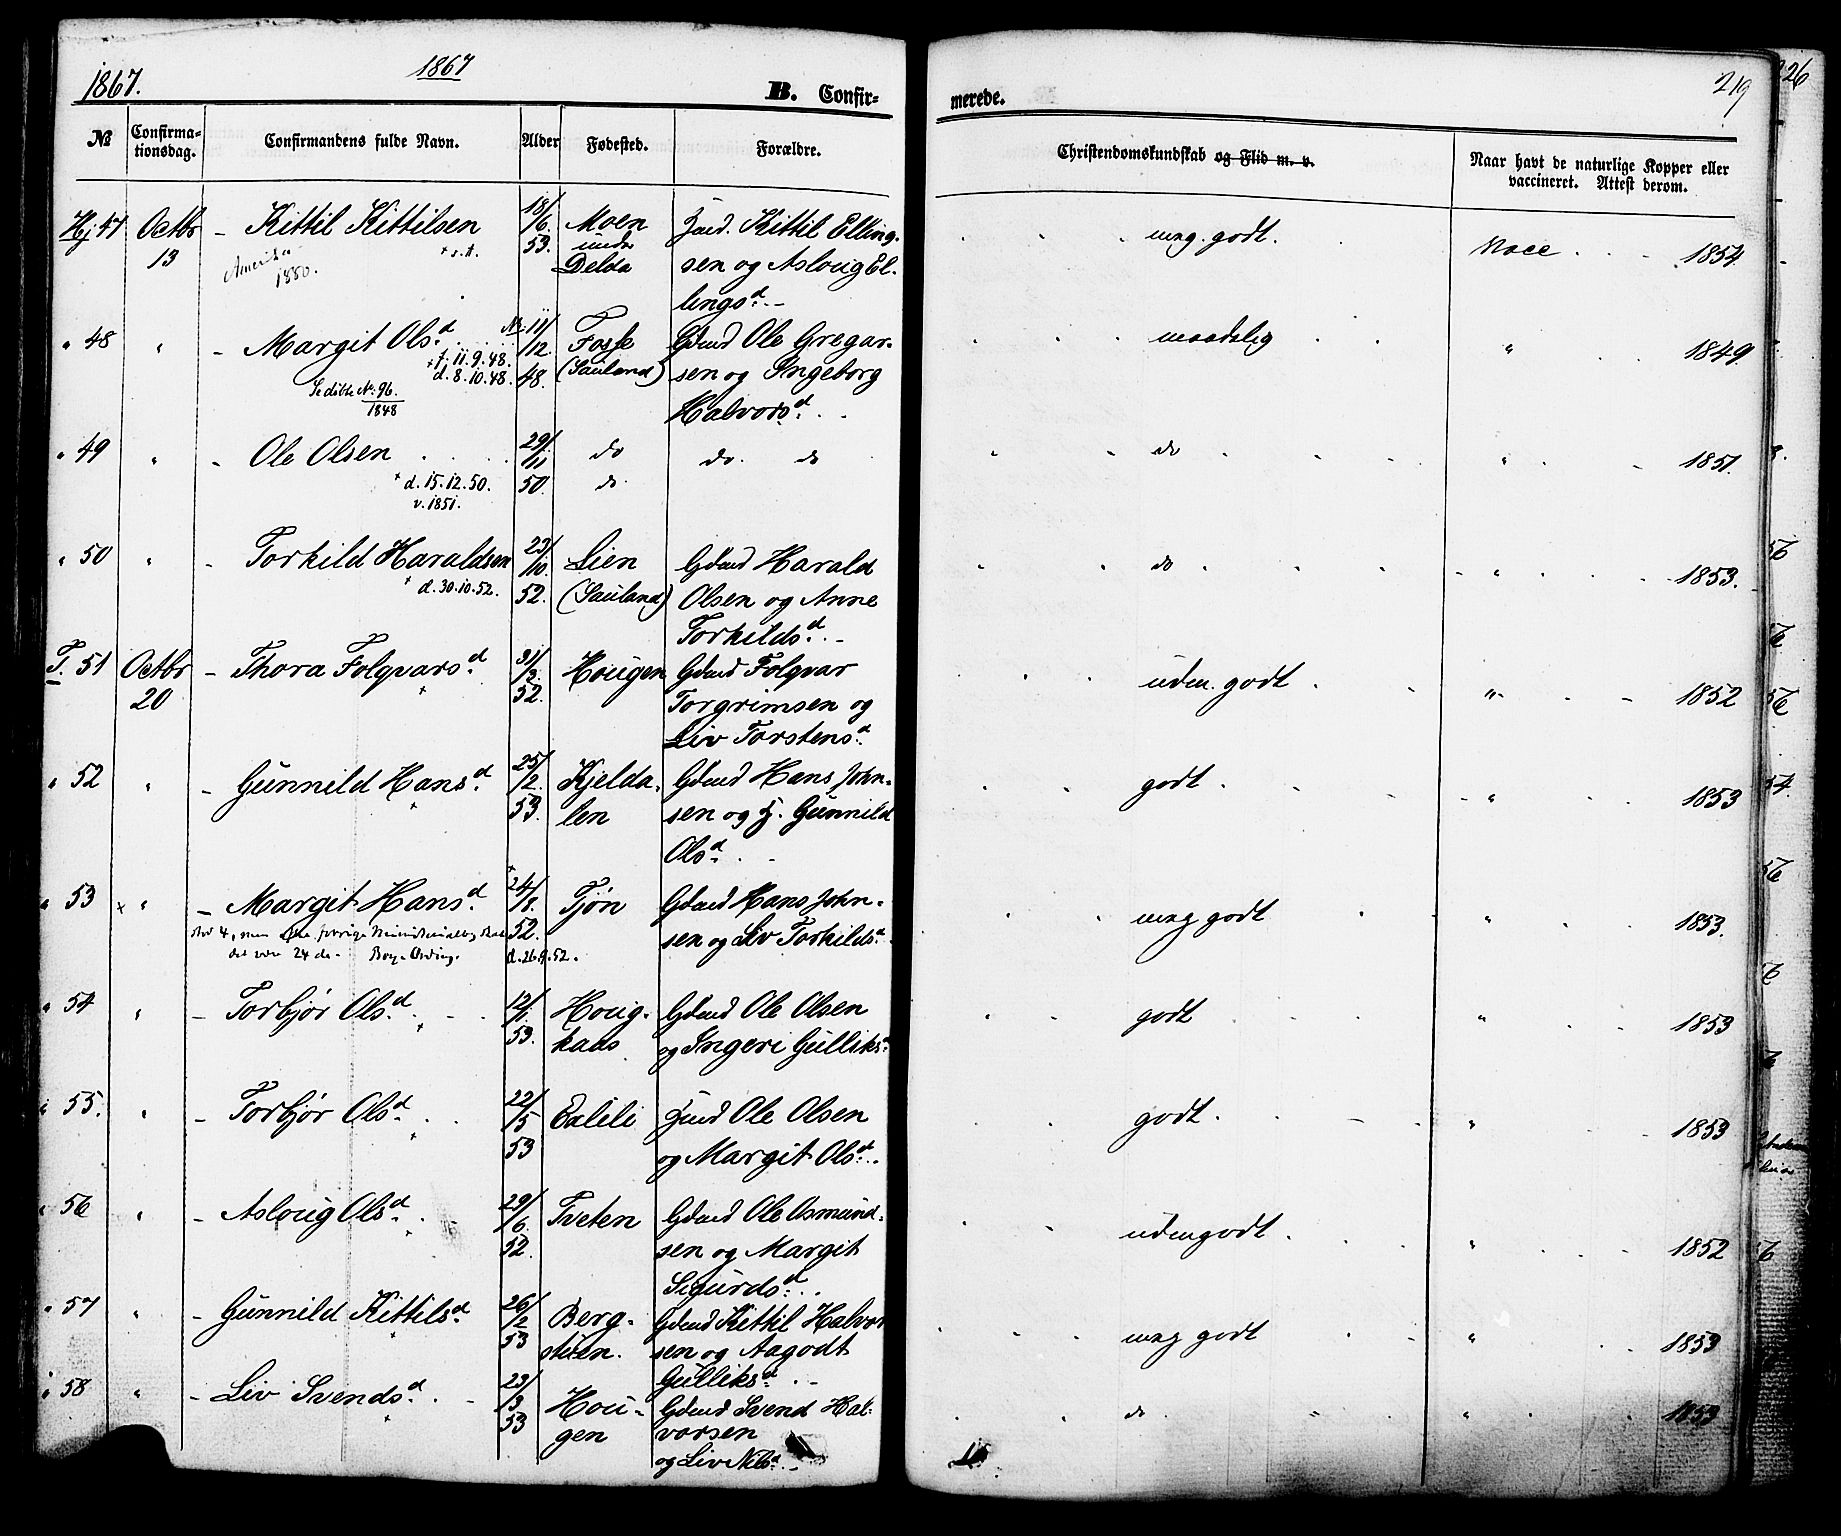 1867. 1867 B. Confir- merede. 219
№ Confirma-tionsdag. Confirmandens fulde Navn. Alder Fødested. Forældre. Christendomskundskab og Flid m. v. Naar havt de naturlige Kopper eller vaccineret. Attest derom.
Hj. 47 Octbr – Kittil Kittilsen 18/6. Moen Kittil Elling- meg. godt. Vacc. 1854.
13 Amerika 53. under sen og Asloug El-
1880. Delda lingsd.
" 48 " – Margit Olsd. 11/12. Fosse Gdmd Ole Gregar- maadelig " 1849
f. 11.9.48. 48. (Sauland) sen og Ingeborg
d. 8.10.48. Halvorsd.
Se døbte №. 96.
1848
" 49 " – Ole Olsen 29/11 do do. do do " 1851.
d. 15.12.50. 50. do.
v. 1851.
" 50 " – Torkild Haraldsen 23/10. Lien Gdmd Harald do " 1853.
d. 30.10.52. 52. (Sauland) Olsen og Anne
Torkildsd.
T. 51 Octbr – Thora Folqvarsd. 31/3. Hougen Gdmd Folqvar uden. godt. " 1852
20 52. Torgrimsen og
Liv Torstensd.
" 52 " – Gunnild Hansd. 25/2. Kjelda- Gdmd Hans John- godt. " 1853
53. len sen og H. Gunnild
Olsd.
" 53 " – Margit Hansd. 24/8. Tjøn Gdmd Hans John- meg godt " 1853.
52. sen og Liv Torkildsd.
det være 24 de. d. 26.9.52.
" 54 " – Torbjør Olsd. 12/1. Houg- Gdmd Ole Olsen godt " 1853
53. kaas og Ingeri Gulliksd.
" 55. " – Torbjør Olsd. 22/5 Ealili Ole Olsen godt. " 1853
53 og Margit Olsd.
" 56 " – Asloug Olsd. 29/6. Tveten Gdmd Ole Asmund- uden godt. " 1852
52. sen og Margit
Sigurdsd.
" 57 " – Gunnild Kittilsd. 26/2 Berg- Gdmd Kittil Halvor meg godt " 1853
53 stuen. sen og Aagodt
Gulliksd.
" 58 " – Liv Svendsd. 23/3 Hou- Gdmd Svend Hal- do " 1853
53 gen vorsen
og Liv Nilsd.